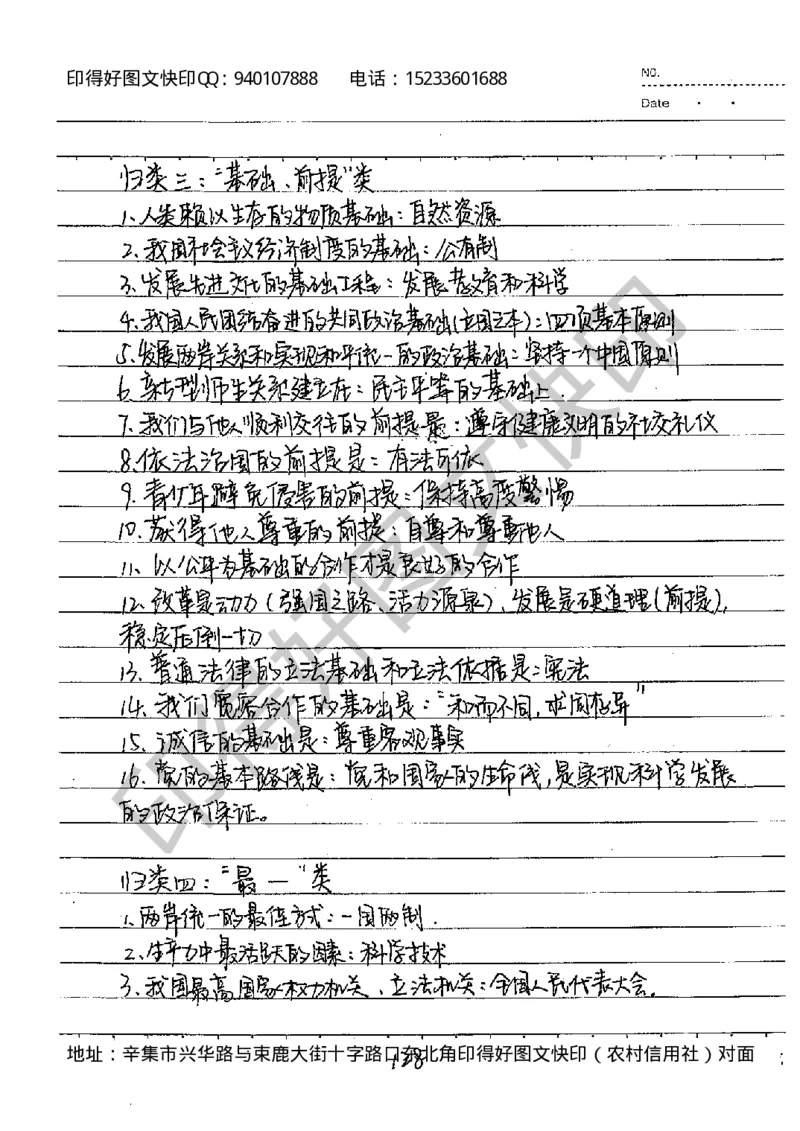 印得好图文快印QQ：940107888 电话：15233601688
NO.
Date
归类三："基础、前提"类
1、人类赖以生存的物质基础：自然资源
2、我国社会主义经济制度的基础：公有制
3、发展先进文化的基础工程：发展教育和科学
4、我国人民团结奋进的共同政治基础(立国之本)：四项基本原则
5、发展两岸关系和实现和平统一的政治基础：坚持一个中国原则
6、新型师生关系建立在：民主平等的基础上.
7、我们与他人顺利交往的前提是：遵守健康文明的社交礼仪
8、依法治国的前提是：有法可依
9、青少年避免侵害的前提：保持高度警惕
10、获得他人尊重的前提：自尊和尊重他人
11、以公平为基础的合作才是更好的合作
12、改革是动力（强国之路、活力源泉）、发展是硬道理（前提），
稳定压倒一切
13、普通法律的立法基础和立法依据是：宪法
14、我们团结合作的基础是："和而不同，求同存异"
15、诚信的基础是：尊重客观事实
16、党的基本路线是：党和国家的生命线，是实现科学发展
的政治保证。
归类四："最一"类
1、两岸统一的最佳方式：一国两制.
2、生产力中最活跃的因素：科学技术
3、我国最高国家权力机关、立法机关：全国人民代表大会.
地址：辛集市兴华路与束鹿大街十字路口东北角印得好图文快印（农村信用社）对面
128
印得好图文快印